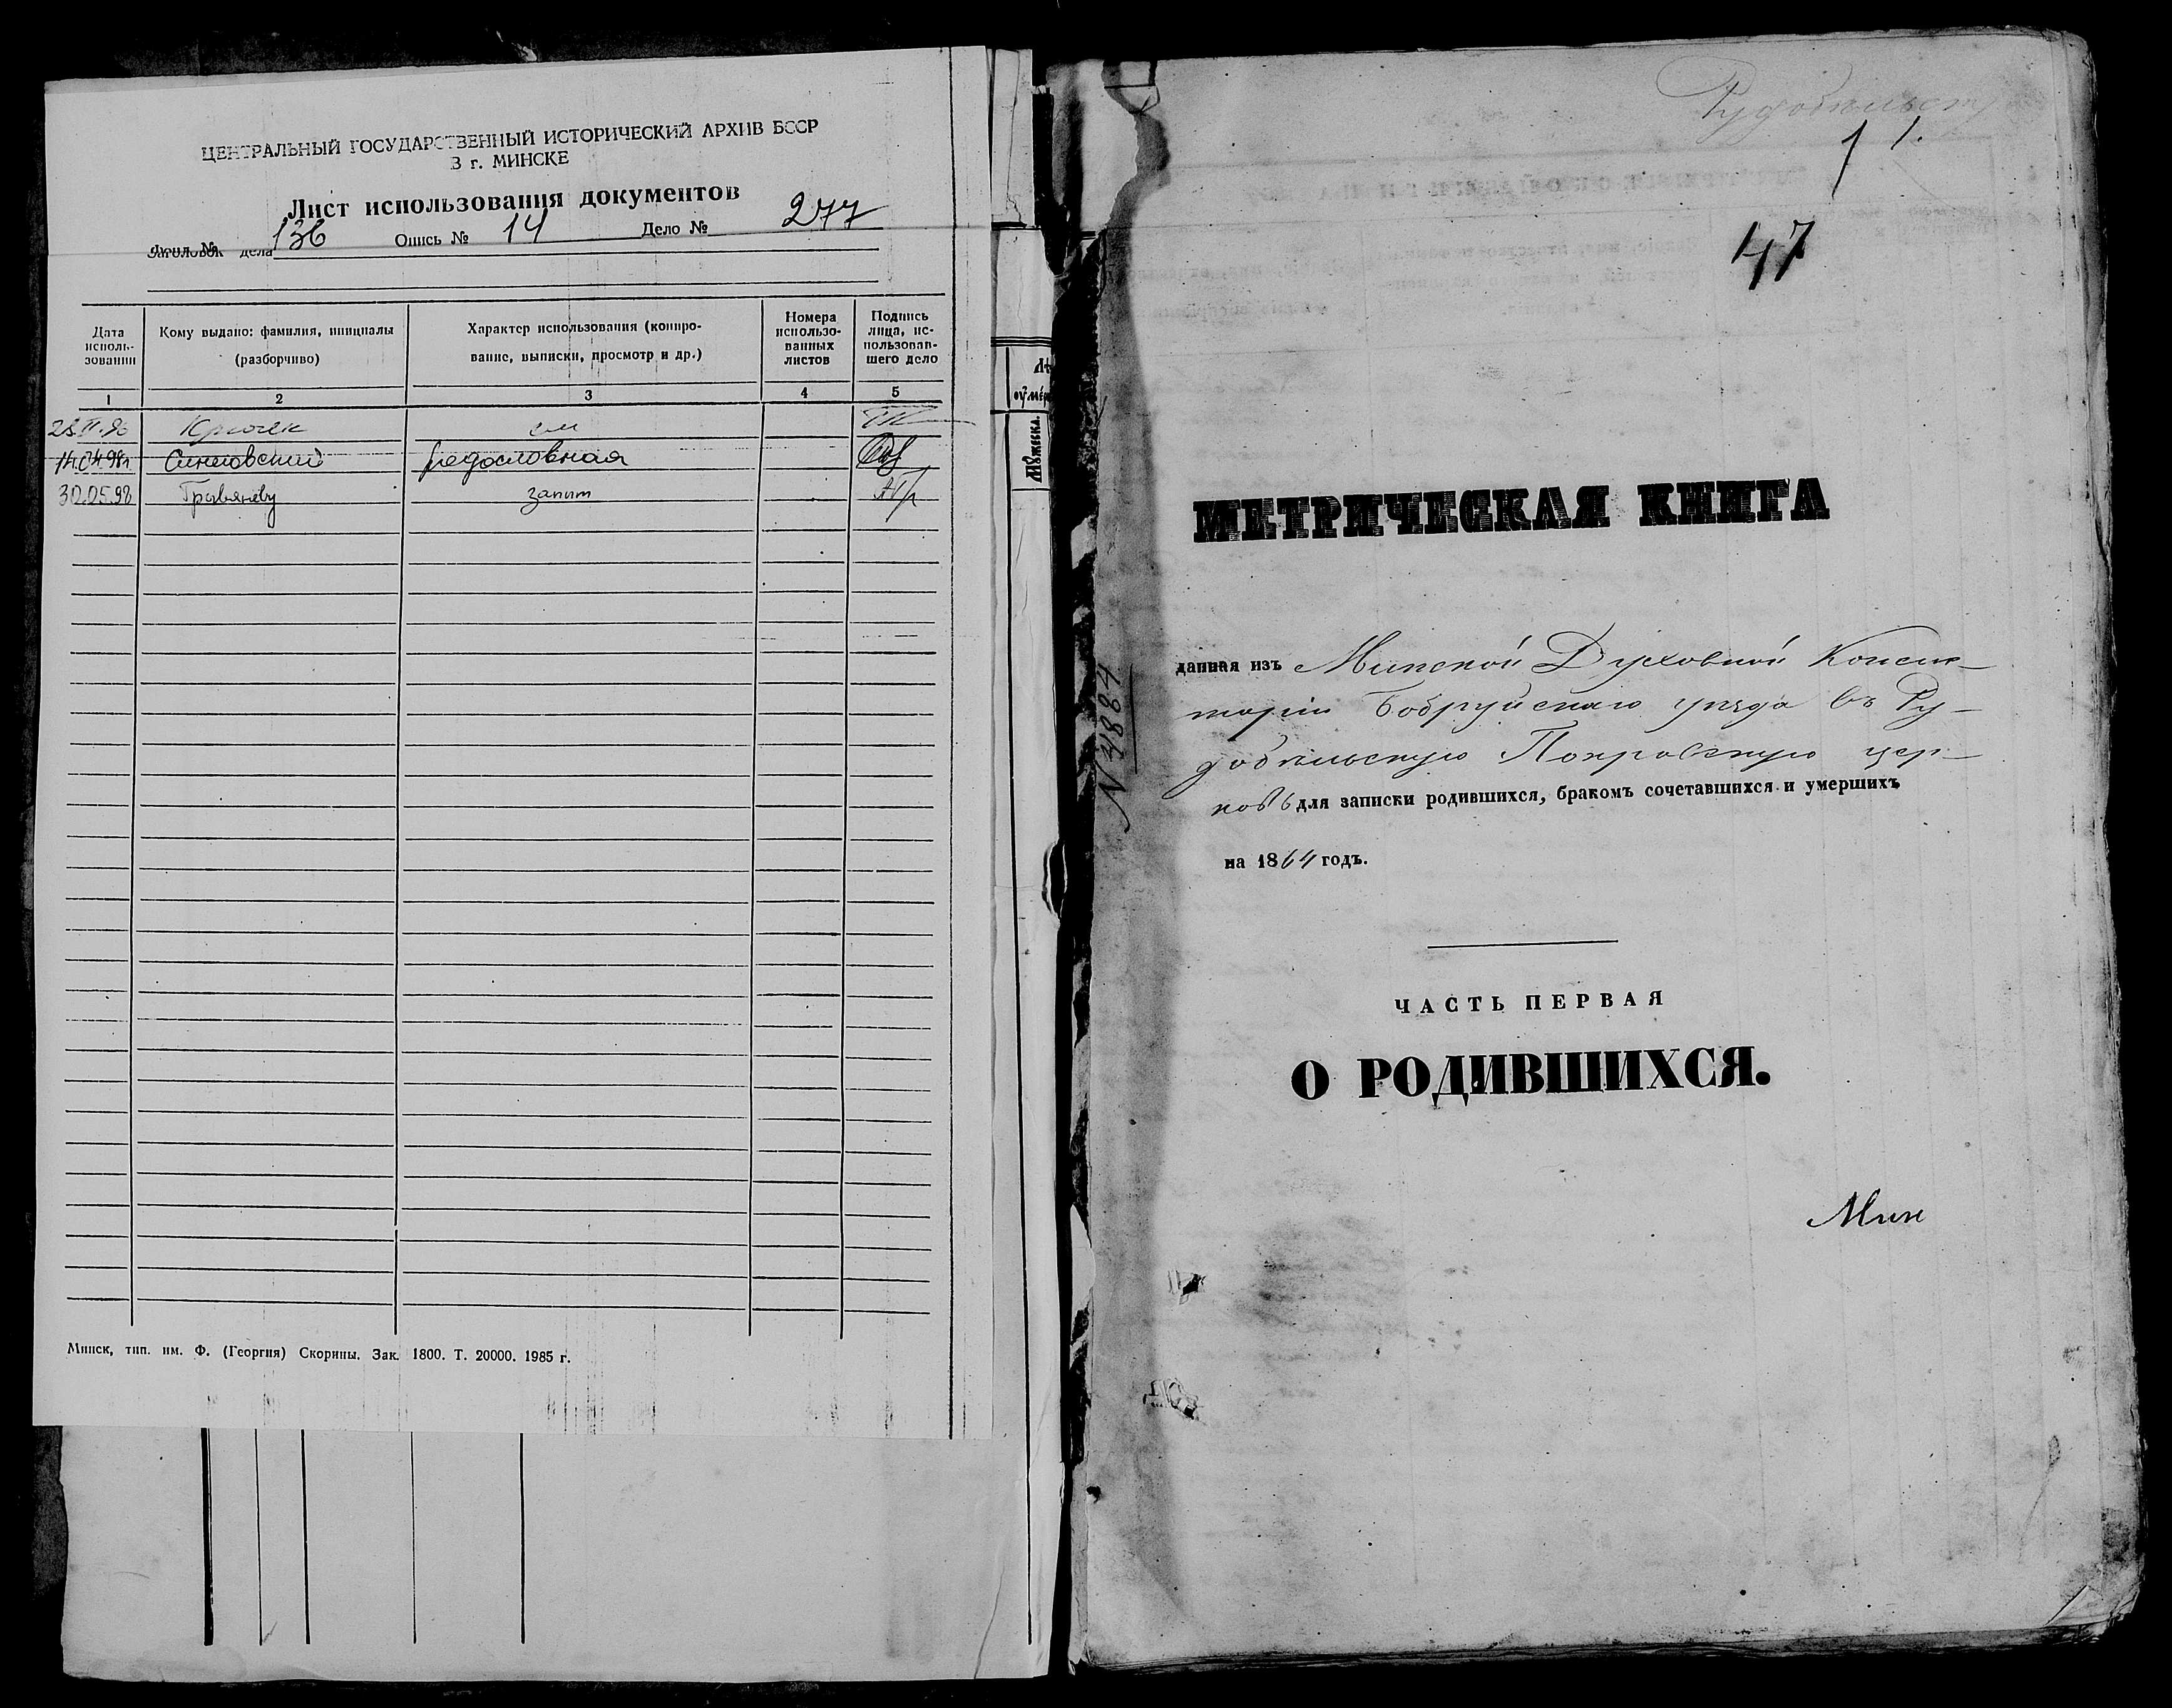 ЦЕНТРАЛЬНЫЙ ГОСУДАРСТВЕННЫЙ ИСТОРИЧЕСКИЙ АРХИВ БССР
В г. МИНСКЕ
Лист использования документов
Фонд № 136 Опись № 14 Дело № 277
Заголовок дела
Дата
исполь-
зования
Кому выдано: фамилия, инициалы
(разборчиво)
Характер использования (копиро-
вание, выписки, просмотр и др.)
Номера
использо-
ванных
листов
Подпись
лица, ис-
пользовав-
шего дело
1 2 3 4 5
14.04.98г Синковский родословная
30.05.98
Минск, тип. им. Ф. (Георгия) Скорины. Зак. 1800. Т. 20000. 1985 г.
Мꙋжеска.
1 1.
47
МЕТРИЧЕСКАЯ КНИГА
данная изъ Минской Духовной Консис-
торіи Бобруйскаго уѣзда въ Ру-
добѣльскую Покровскую цер-
ковь для записки родившихся, бракомъ сочетавшихся и умершихъ
на 1864 годъ.
ЧАСТЬ ПЕРВАЯ
О РОДИВШИХСЯ.
Мин